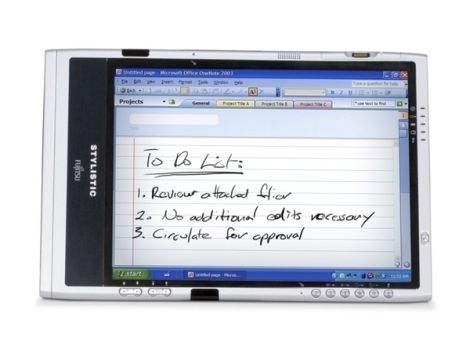 Untitled page - Microsoft Office OneNote 2003
File Edit View Insert Format Tools Window Help
Type a question for help
Back
Projects
General
Project Title A
Project Title B
Project Title C
Type text to find
To Do List:
1. Review attached flier
2. No additional edits necessary
3. Circulate for approval
STYLISTIC
FUJITSU
start
Untitled page - Micros...